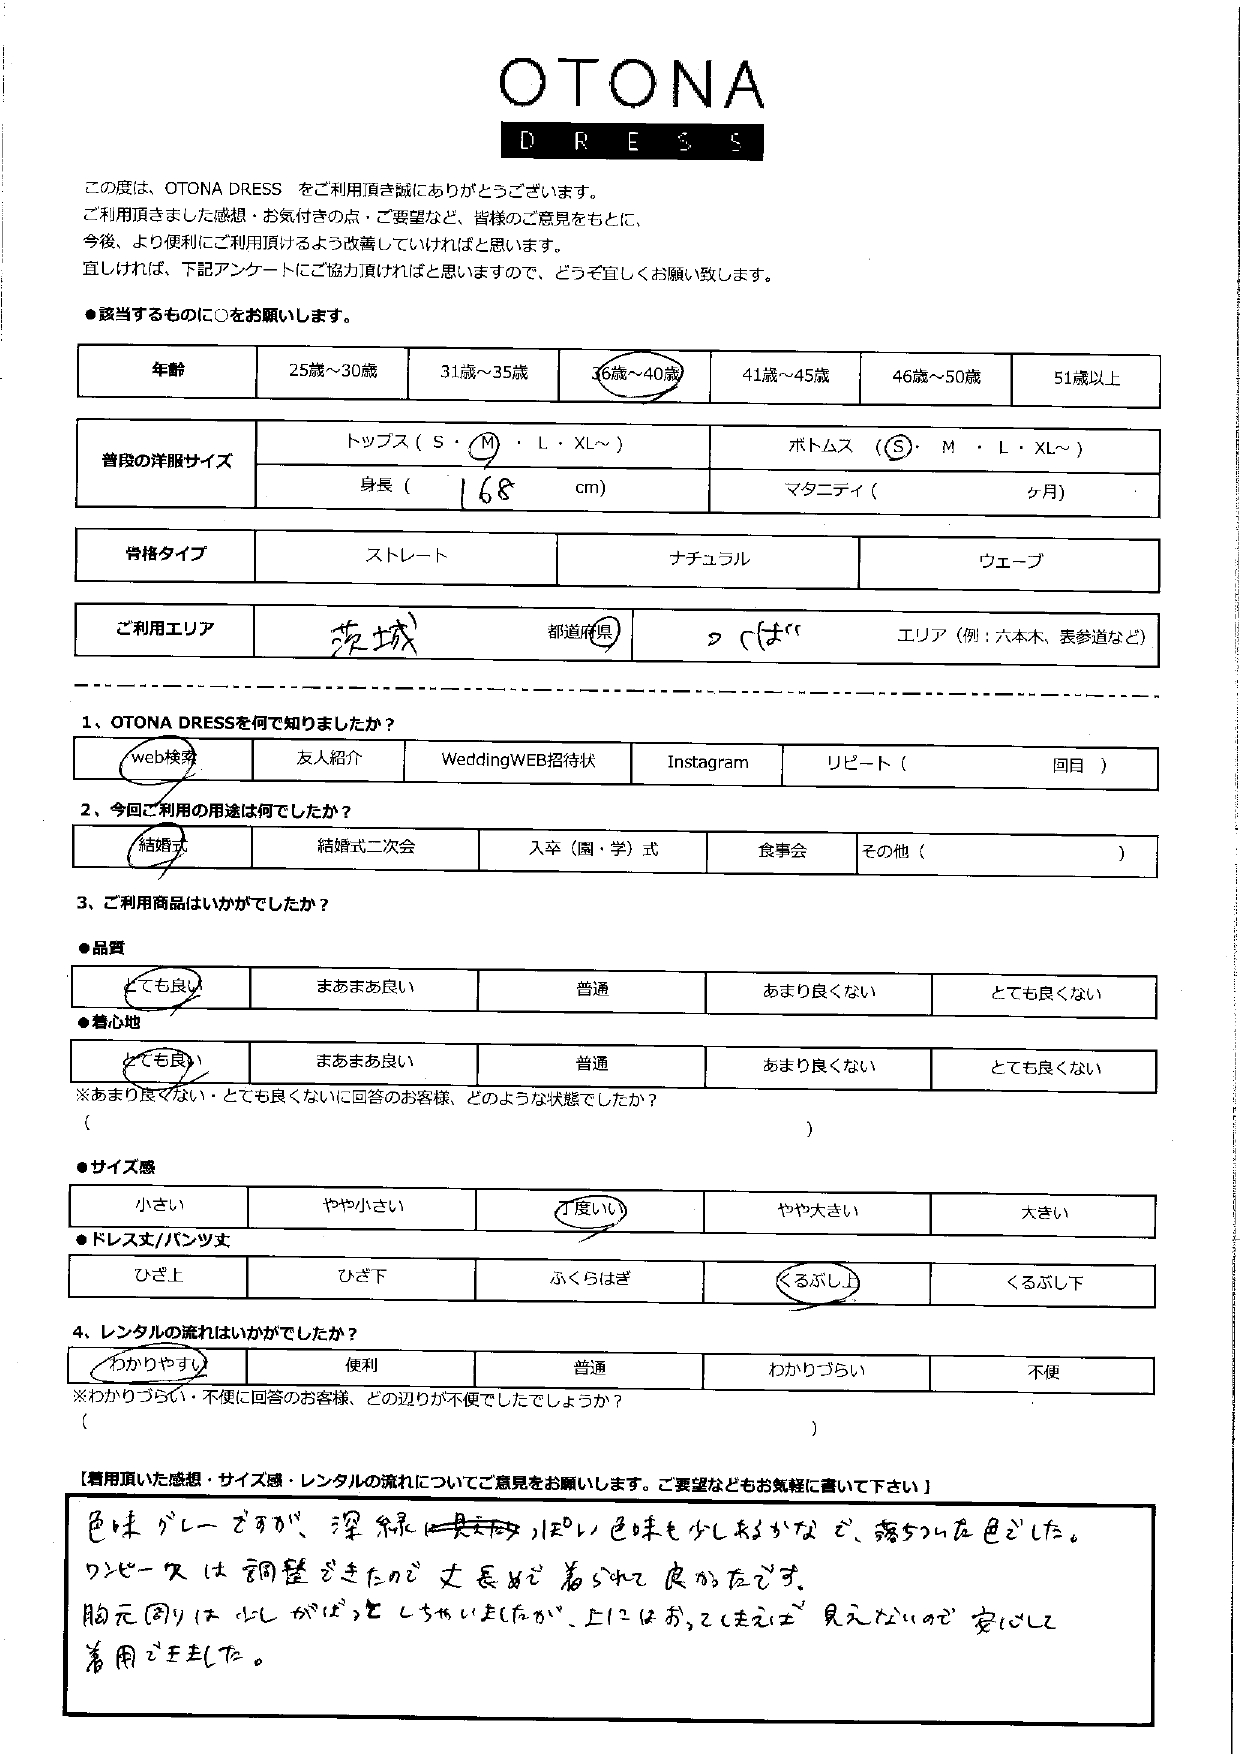 OTONA
DRESS
この度は、OTONA DRESS　をご利用頂き誠にありがとうございます。
ご利用頂きました感想・お気付きの点・ご要望など、皆様のご意見をもとに、
今後、より便利にご利用頂けるよう改善していければと思います。
宜しければ、下記アンケートにご協力頂ければと思いますので、どうぞ宜しくお願い致します。
●該当するものに○をお願いします。
年齢 25歳～30歳 31歳～35歳 36歳～40歳 41歳～45歳 46歳～50歳 51歳以上
普段の洋服サイズ トップス ( S ・ M ・ L ・ XL～ ) ボトムス (S・ M ・ L ・ XL～ )
身長 ( 168 cm) マタニティ ( ヶ月)
骨格タイプ ストレート ナチュラル ウェーブ
ご利用エリア 茨城 都道府県 つくば エリア（例：六本木、表参道など）
1、OTONA DRESSを何で知りましたか？
web検索 友人紹介 WeddingWEB招待状 Instagram リピート ( 回目 )
2、今回ご利用の用途は何でしたか？
結婚式 結婚式二次会 入卒（園・学）式 食事会 その他 ( )
3、ご利用商品はいかがでしたか？
●品質
とても良い まあまあ良い 普通 あまり良くない とても良くない
●着心地
とても良い まあまあ良い 普通 あまり良くない とても良くない
※あまり良くない・とても良くないに回答のお客様、どのような状態でしたか？
( )
●サイズ感
小さい やや小さい 丁度いい やや大きい 大きい
●ドレス丈/パンツ丈
ひざ上 ひざ下 ふくらはぎ くるぶし上 くるぶし下
4、レンタルの流れはいかがでしたか？
わかりやすい 便利 普通 わかりづらい 不便
※わかりづらい・不便に回答のお客様、どの辺りが不便でしたでしょうか？
( )
【着用頂いた感想・サイズ感・レンタルの流れについてご意見をお願いします。ご要望などもお気軽に書いて下さい】
色味グレーですが、深緑っぽい色味も少しあるかなで、落ちついた色でした。
ワンピースは調整できたので丈長めで着られて良かったです。
胸元周りは少しがばっとしちゃいましたが、上にはおってしまえば見えないので安心して
着用できました。